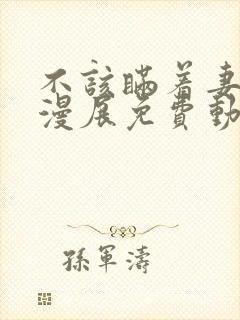 不该瞒着妻
漫展免費動
孫軍濤